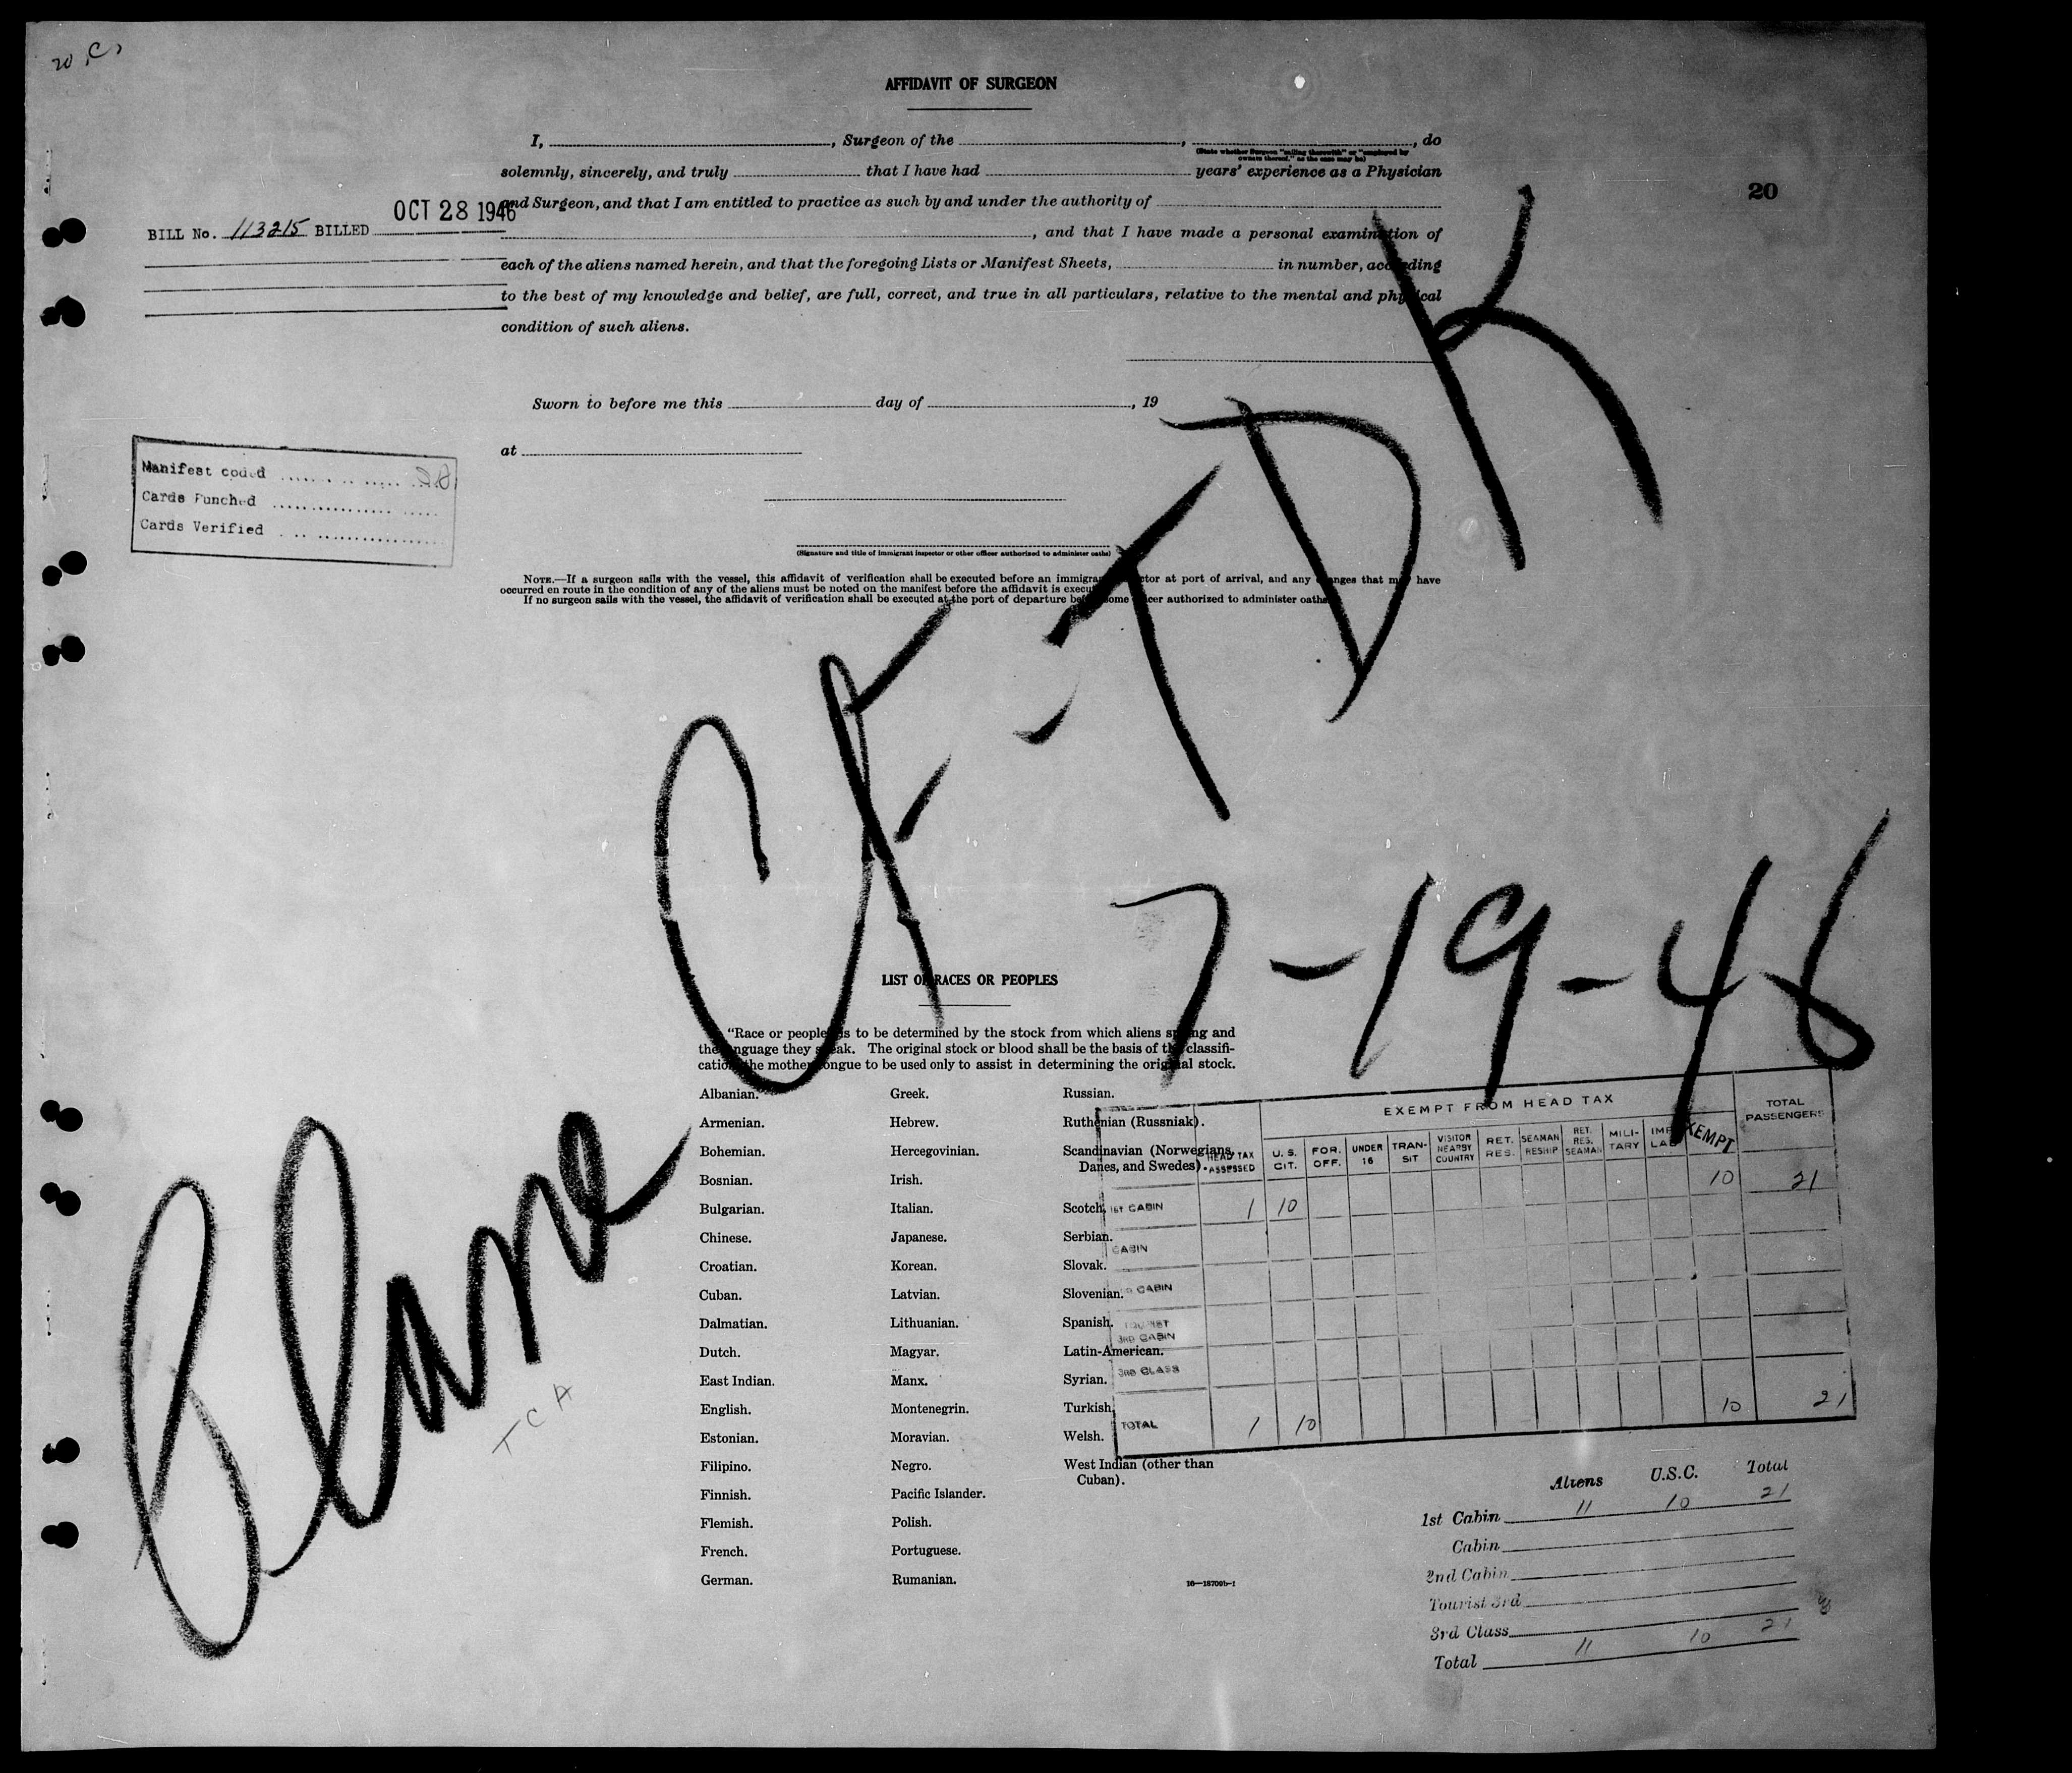 20 C
AFFIDAVIT OF SURGEON
I, , Surgeon of the , , do
(State whether Surgeon "sailing therewith" or "employed by
owners thereof," as the case may be)
solemnly, sincerely, and truly that I have had years' experience as a Physician
20
and Surgeon, and that I am entitled to practice as such by and under the authority of
OCT 28 1946
BILL No. 113215 BILLED
, and that I have made a personal examination of
each of the aliens named herein, and that the foregoing Lists or Manifest Sheets, in number, according
to the best of my knowledge and belief, are full, correct, and true in all particulars, relative to the mental and physical
condition of such aliens.
Sworn to before me this day of , 19
at
Manifest coded
Cards Punched
Cards Verified
(Signature and title of immigrant inspector or other officer authorized to administer oaths)
NOTE.—If a surgeon sails with the vessel, this affidavit of verification shall be executed before an immigrant inspector at port of arrival, and any changes that may have
occurred en route in the condition of any of the aliens must be noted on the manifest before the affidavit is executed.
If no surgeon sails with the vessel, the affidavit of verification shall be executed at the port of departure before some officer authorized to administer oaths.
Plane CF-TDK
7-19-46
TCA
LIST OF RACES OR PEOPLES
"Race or people" is to be determined by the stock from which aliens sprung and
the language they speak. The original stock or blood shall be the basis of the classifi-
cation, the mother tongue to be used only to assist in determining the original stock.
Albanian.
Armenian.
Bohemian.
Bosnian.
Bulgarian.
Chinese.
Croatian.
Cuban.
Dalmatian.
Dutch.
East Indian.
English.
Estonian.
Filipino.
Finnish.
Flemish.
French.
German.
Greek.
Hebrew.
Hercegovinian.
Irish.
Italian.
Japanese.
Korean.
Latvian.
Lithuanian.
Magyar.
Manx.
Montenegrin.
Moravian.
Negro.
Pacific Islander.
Polish.
Portuguese.
Rumanian.
Russian.
Ruthenian (Russniak).
Scandinavian (Norwegians,
Danes, and Swedes).
Scotch.
Serbian.
Slovak.
Slovenian.
Spanish.
Latin-American.
Syrian.
Turkish.
Welsh.
West Indian (other than
Cuban).
16—18709b-1
EXEMPT FROM HEAD TAX TOTAL PASSENGERS
HEAD TAX ASSESSED U. S. CIT. FOR. OFF. UNDER 16 TRAN-SIT VISITOR NEARBY COUNTRY RET. RES. SEAMAN RESHIP RET. RES. SEAMAN MILI-TARY EXEMPT
1ST CABIN 1 10 10 21
CABIN
CABIN
TOURIST
3RD CABIN
3RD CLASS
TOTAL 1 10 10 21
Aliens U.S.C. Total
1st Cabin 11 10 21
Cabin
2nd Cabin
Tourist 3rd
3rd Class
Total 11 10 21